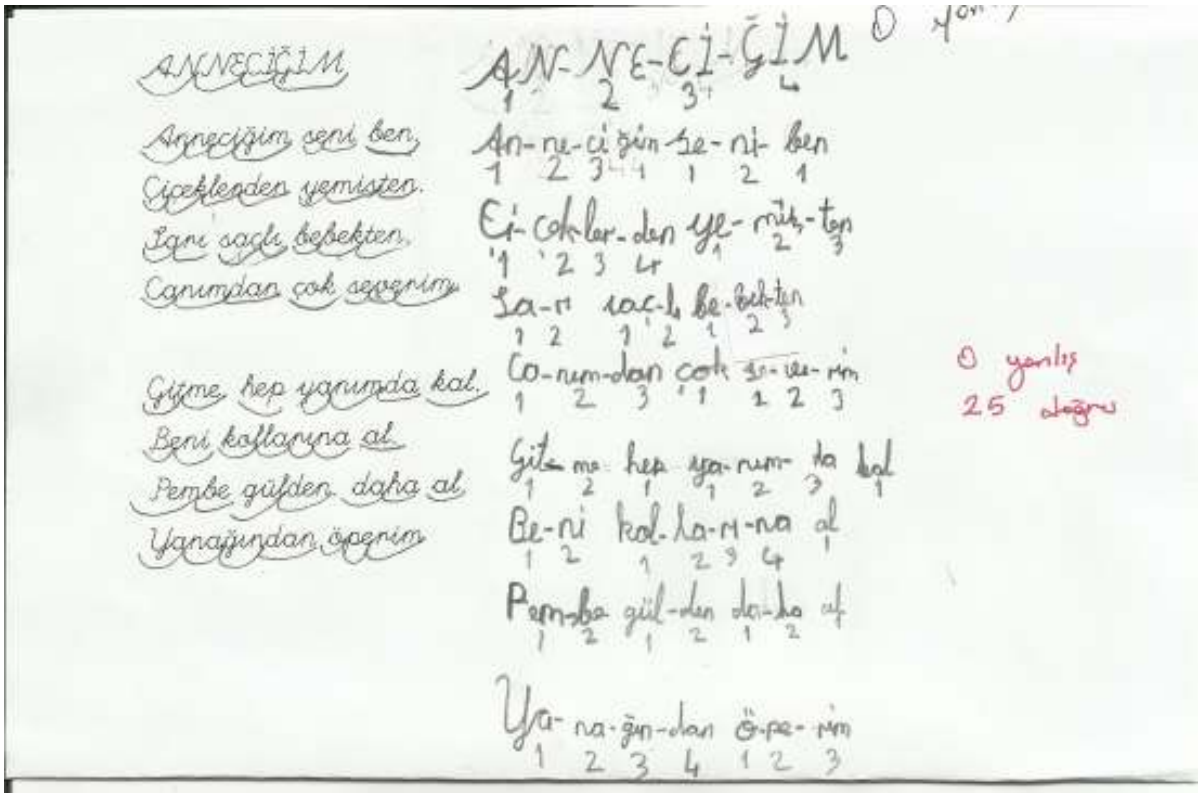 ANNECİĞİM
Anneciğim seni ben,
Çiçeklerden yemişten.
Sarı saçlı bebekten,
Canımdan çok severim
Gitme, hep yanımda kal.
Beni kollarına al.
Pembe gülden daha al
Yanağından öperim
AN-NE-Cİ-ĞİM
1 2 3 4
An-ne-ci ğim se-ni-ben
1 2 3 4 1 2 1
Çi-cek-ler-den ye-miş-ten
1 2 3 4 1 2 3
Sa-rı saç-lı be-bek-ten
1 2 1 2 1 2 3
Ca-nım-dan çok se-ve-rim
1 2 3 1 1 2 3
Git-me hep ya-nım-da kal
1 2 1 1 2 3 1
Be-ni kol-la-rı-na al
1 2 1 2 3 4 1
Pem-be gül-den da-ha al
1 2 1 2 1 2
Ya-na-ğın-dan ö-pe-rim
1 2 3 4 1 2 3
0 yanlış
25 doğru